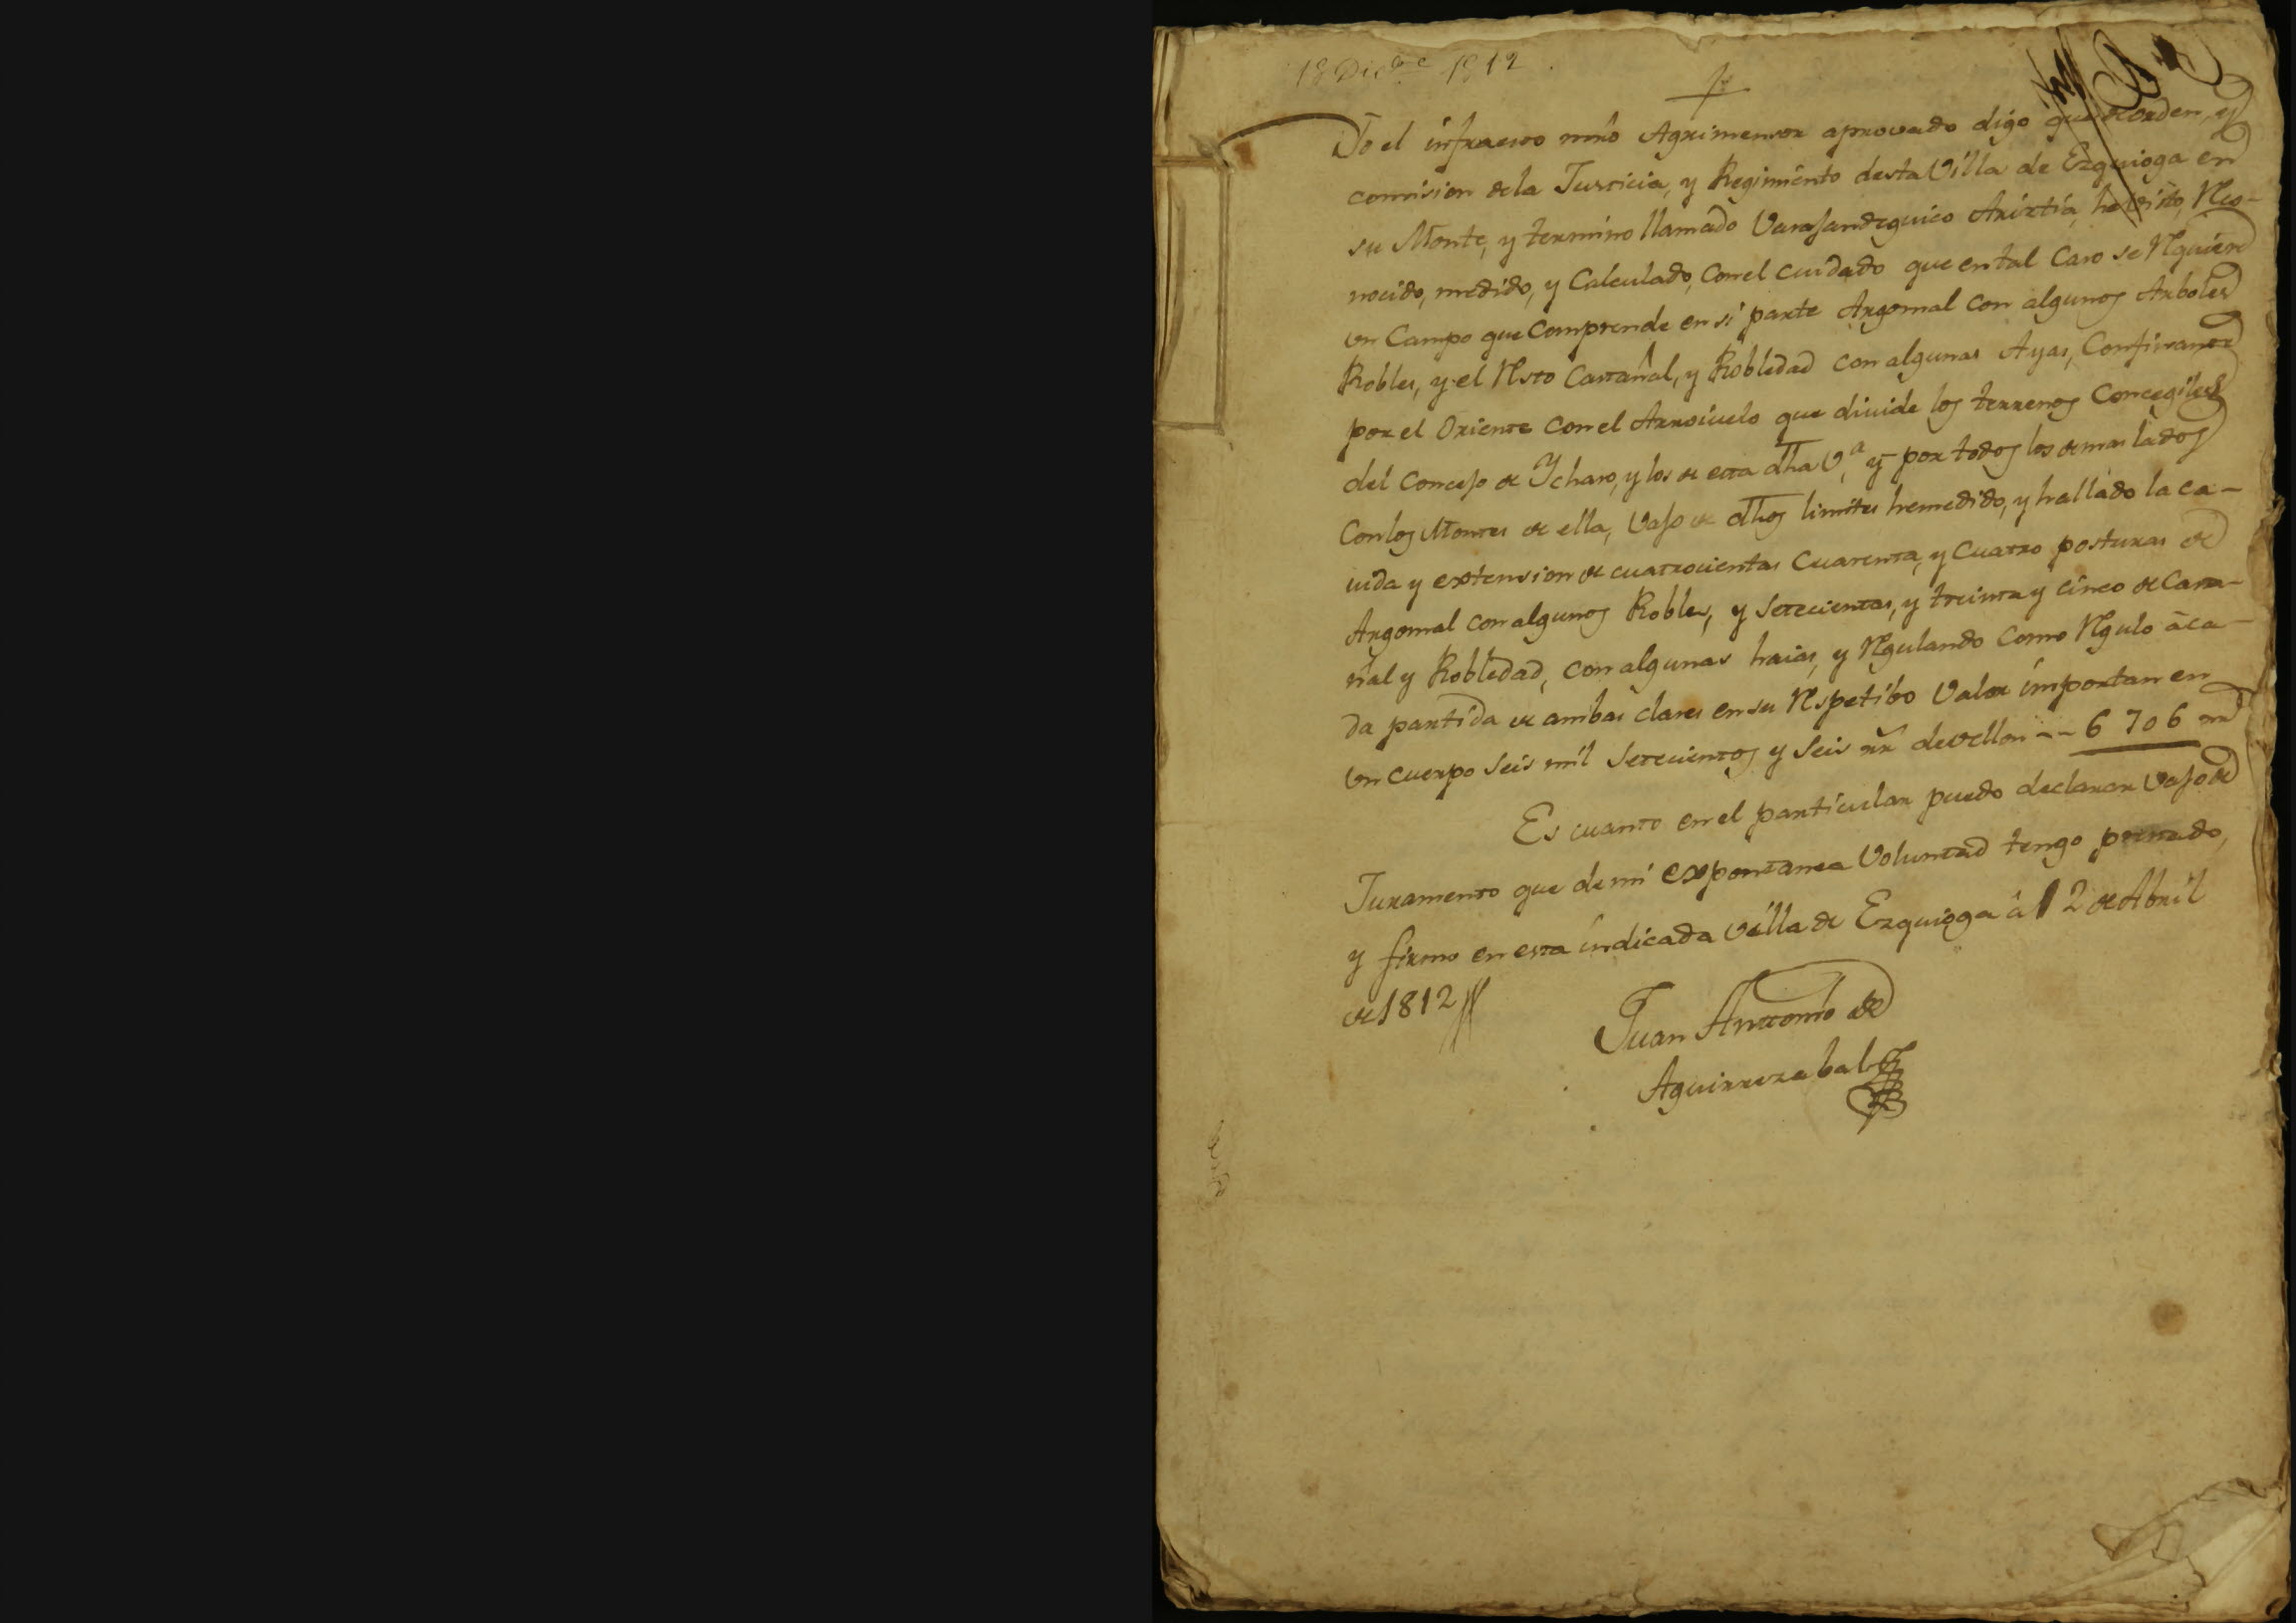 18 Dic.bre 1812.
Yo el infraesto mro Agrimensor aprovado digo que de orden, y
comision de la Justicia, y Regimiento desta Villa de Ezquioga en
su Monte, y termino llamado Varasandeguico Ariztia, he visto, Reco-
nocido, medido, y Calculado, con el cuidado que en tal Caso se Requiere
un Campo que Comprende en si parte Argomal con algunos Arboles
Robles, y el Resto Castañal, y Robledad con algunas Ayas, Confinante
por el Oriente con el Arroiuelo que diuide los terrenos Concegiles
del Concejo de Ycharo, y los de esta dha V.a y por todos los demas lados
Con los Montes de ella, Vajo de dhos limites he medido, y hallado la ca-
uida y extension de cuatrocientas Cuarenta, y Cuatro posturas de
Argomal con algunos Robles, y Setecientas, y treinta y cinco de Casta-
ñal y Robledad, con algunas haias, y Regulando Como Regulo â ca-
da partida de ambas clases en su Respetibo Valor importan en
un cuerpo Seis mil Setecientos y Seis rr de vellon -- 6706 rr
Es cuanto en el particular puedo declarar Vajo de
Juramento que de mi expontanea Voluntad tengo prestado,
y firmo en esta indicada Villa de Ezquioga â 12 de Abril
de 1812
Juan Antonio de
Aguirrezabal